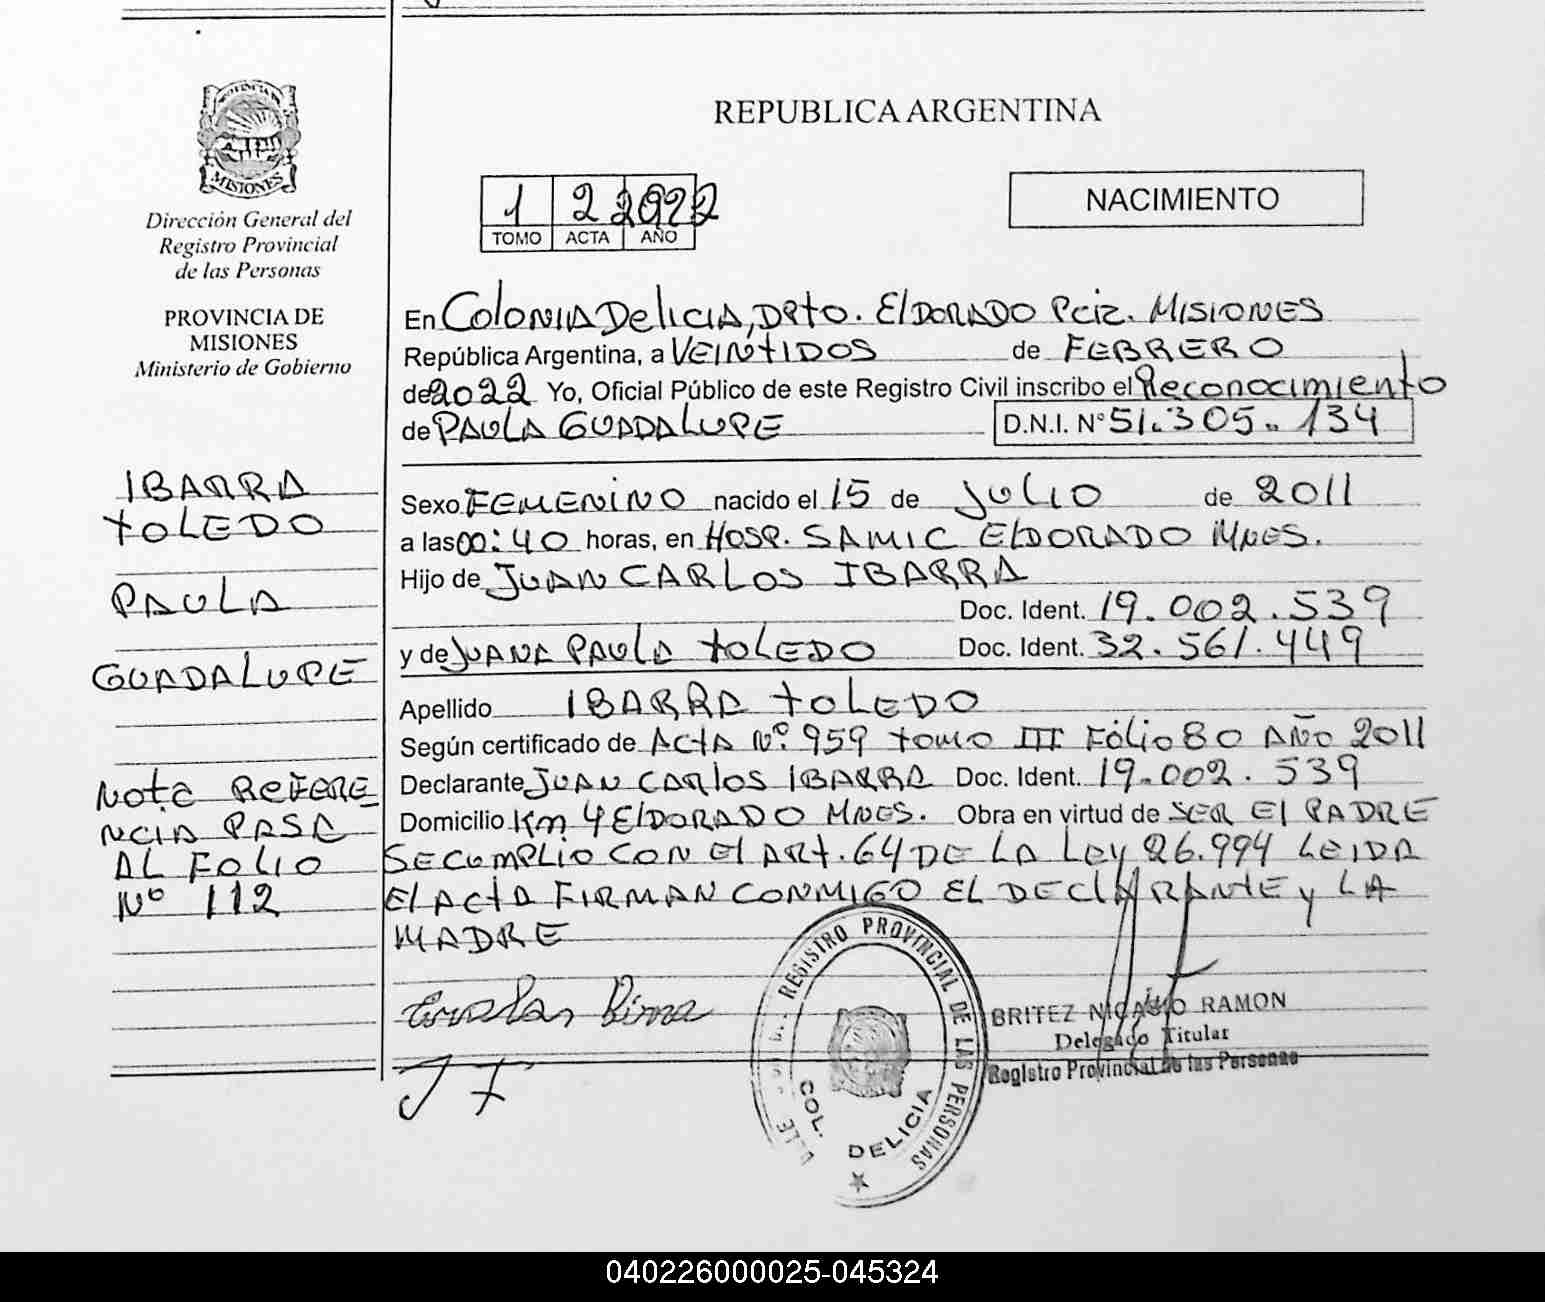 REPUBLICA ARGENTINA
PROVINCIA DE
MISIONES
Dirección General del
Registro Provincial
de las Personas
PROVINCIA DE
MISIONES
Ministerio de Gobierno
1 2 2022
TOMO ACTA AÑO
NACIMIENTO
En Colonia Delicia, Dpto. Eldorado Pcia. Misiones
República Argentina, a VEINTIDOS de FEBRERO
de 2022 Yo, Oficial Público de este Registro Civil inscribo el Reconocimiento
de PAULA GUADALUPE D.N.I. N° 51.305.134
IBARRA
TOLEDO
PAULA
GUADALUPE
Sexo FEMENINO nacido el 15 de JULIO de 2011
a las 00:40 horas, en HOSP. SAMIC ELDORADO MNES.
Hijo de JUAN CARLOS IBARRA
Doc. Ident. 19.002.539
y de JUANA PAULA TOLEDO Doc. Ident. 32.561.449
Apellido IBARRA TOLEDO
Según certificado de ACTA Nº 959 TOMO III Folio 80 AÑO 2011
Declarante JUAN CARLOS IBARRA Doc. Ident. 19.002.539
Domicilio Km 4 ELDORADO MNES. Obra en virtud de SER EL PADRE
SE CUMPLIO CON El ART. 64 DE LA LEY 26.994 LEIDA
El ACTA FIRMAN CONMIGO EL DECLARANTE y LA
MADRE
Nota REFERE
NCIA PASA
AL FOLIO
Nº 112
REGISTRO PROVINCIAL DE LAS PERSONAS
COL. DELICIA
BRITEZ NICASIO RAMON
Delegado Titular
Registro Provincial de las Personas
J T
040226000025-045324